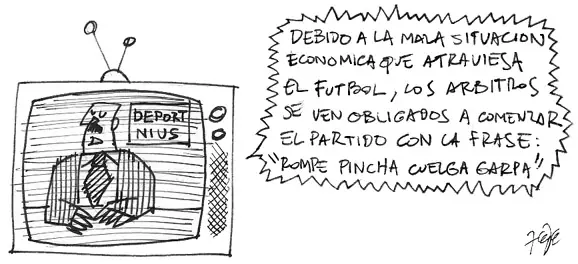 DEPORT
NIUS
DEBIDO A LA MALA SITUACION
ECONOMICA QUE ATRAVIESA
EL FUTBOL, LOS ARBITROS
SE VEN OBLIGADOS A COMENZAR
EL PARTIDO CON LA FRASE:
"ROMPE PINCHA CUELGA GARPA"